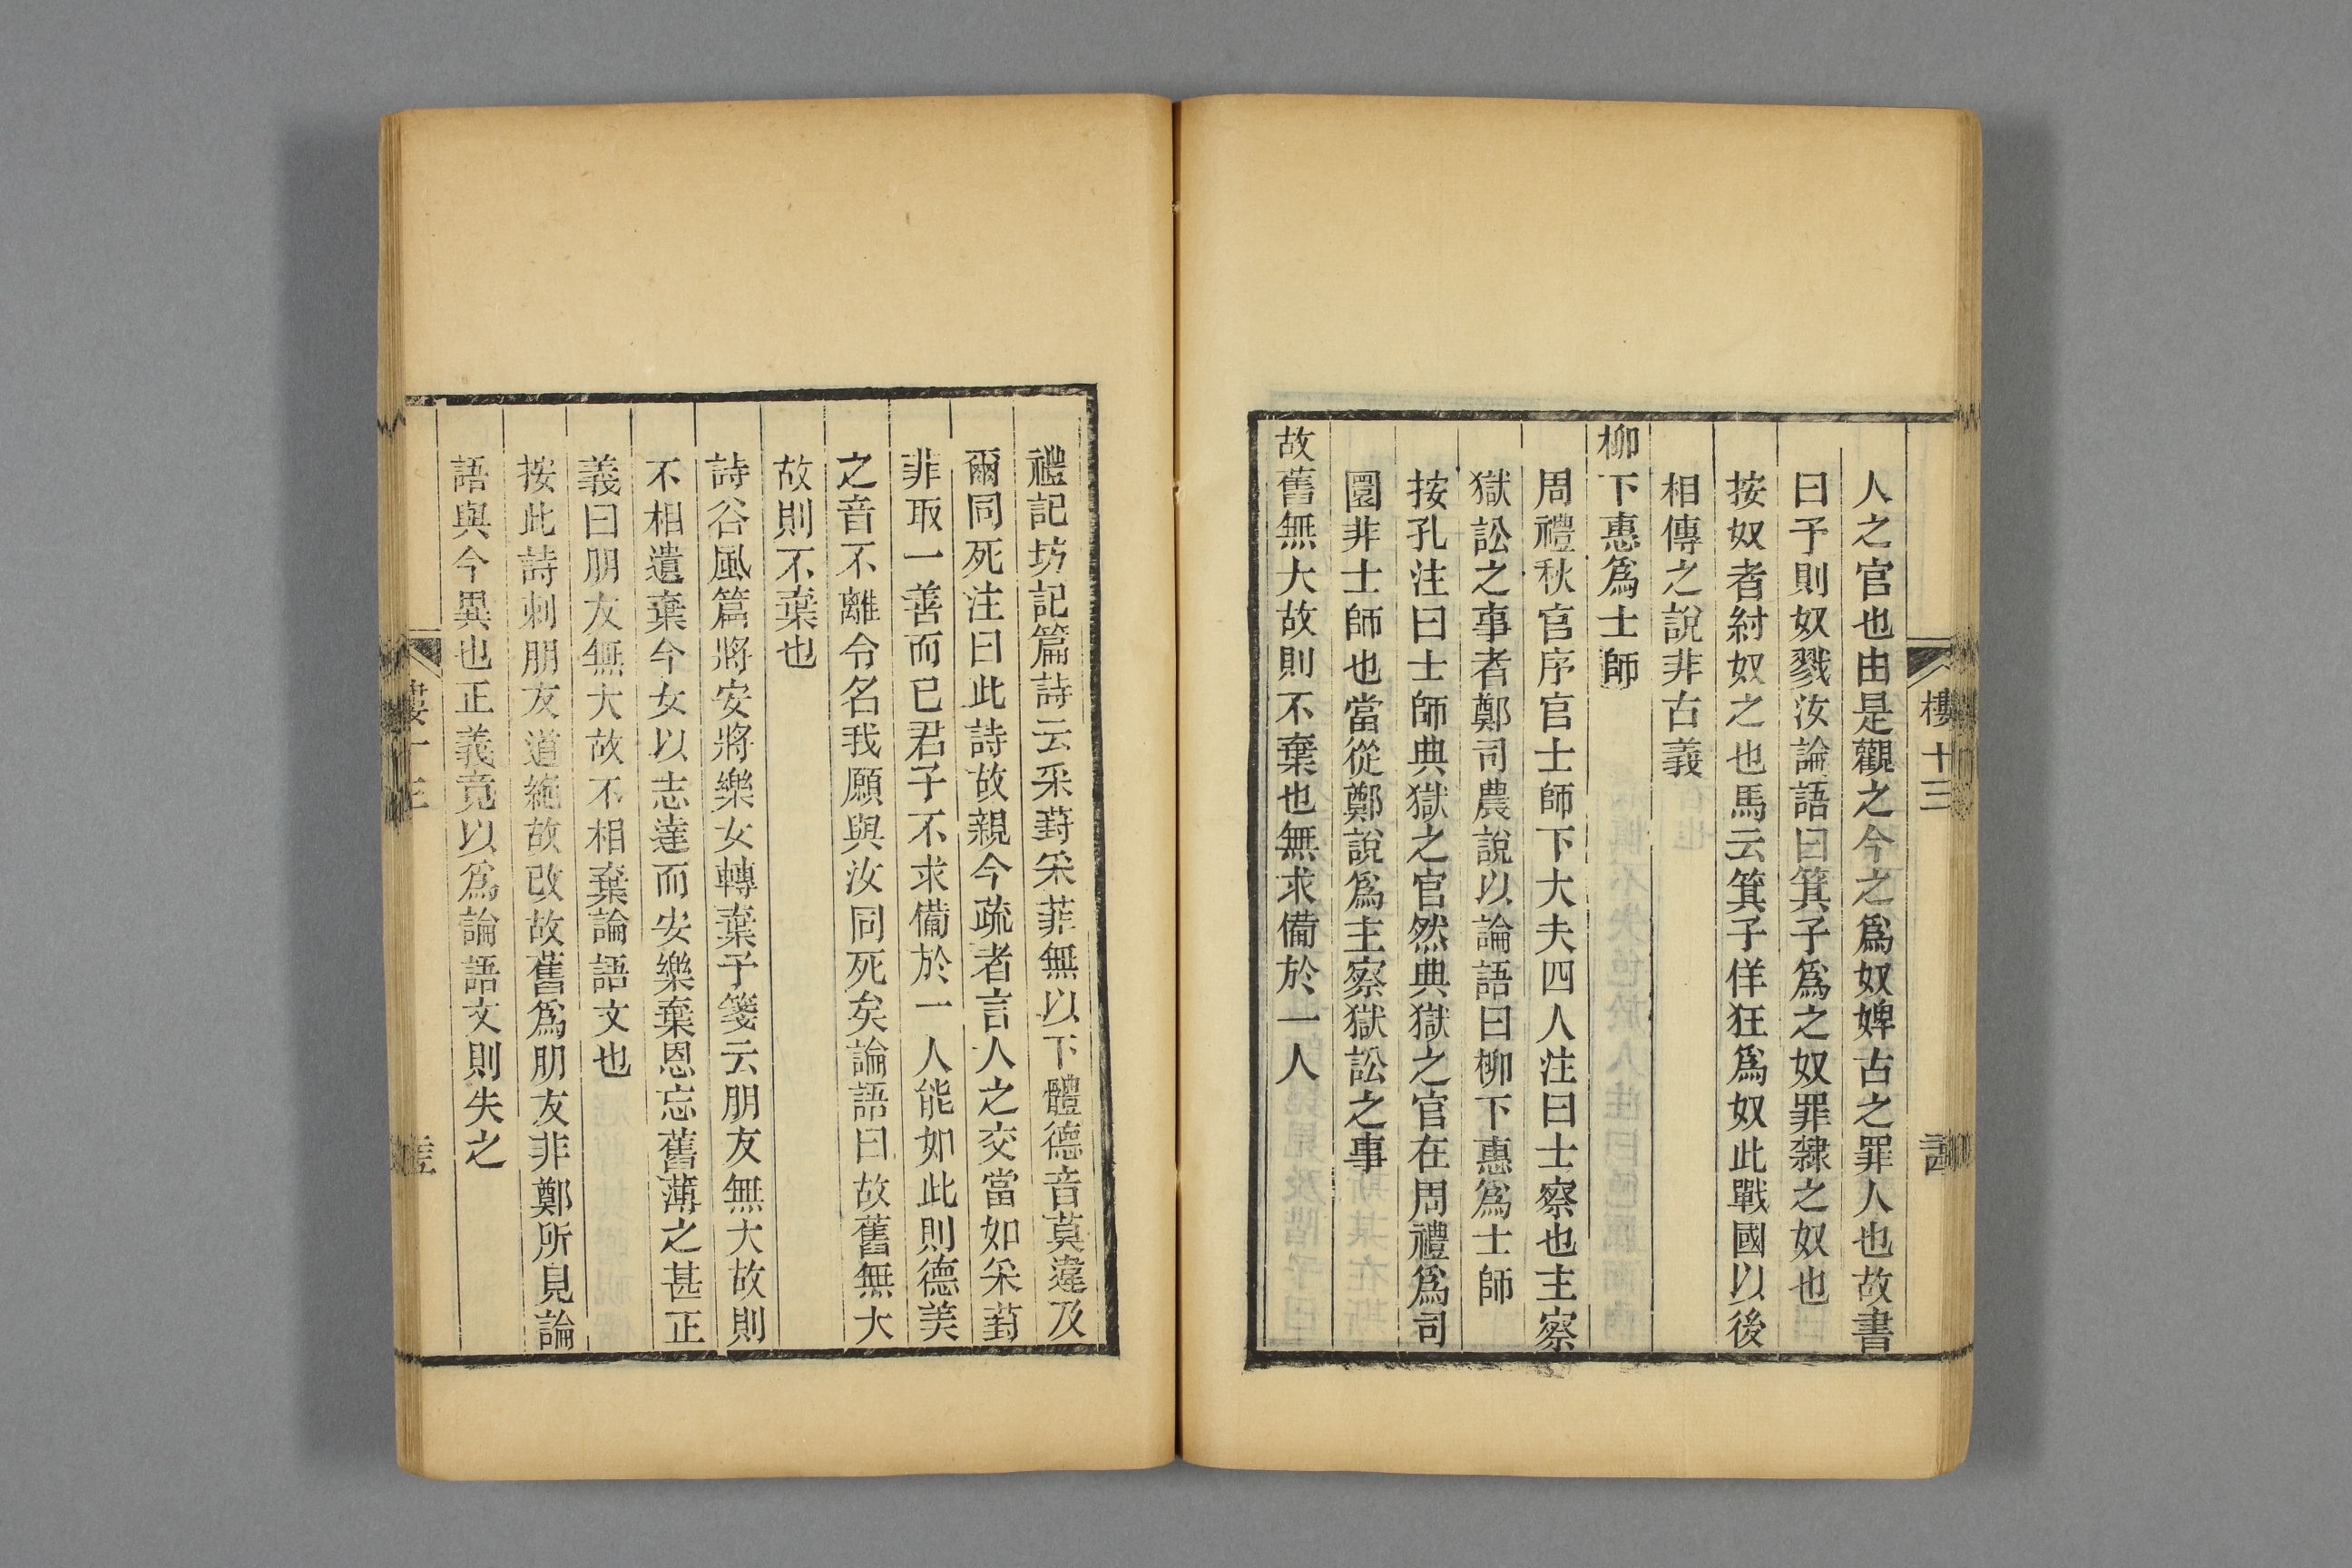 樓十三
人之官也由是觀之今之爲奴婢古之罪人也故書
曰予則奴戮汝論語曰箕子爲之奴罪隸之奴也
按奴者紂奴之也馬云箕子佯狂爲奴此戰國以後
相傳之說非古義
柳下惠爲士師
周禮秋官序官士師下大夫四人注曰士察也主察
獄訟之事者鄭司農說以論語曰柳下惠爲士師
按孔注曰士師典獄之官然典獄之官在周禮爲司
圜非士師也當從鄭說爲主察獄訟之事
故舊無大故則不棄也無求備於一人
禮記坊記篇詩云采葑采菲無以下體德音莫違及
爾同死注曰此詩故親今疏者言人之交當如采葑
非取一善而已君子不求備於一人能如此則德美
之音不離令名我願與汝同死矣論語曰故舊無大
故則不棄也
詩谷風篇將安將樂女轉棄予箋云朋友無大故則
不相遺棄今女以志達而安樂棄恩忘舊薄之甚正
義曰朋友無大故不相棄論語文也
按此詩刺朋友道絶故改故舊爲朋友非鄭所見論
語與今異也正義竟以爲論語文則失之
樓十三